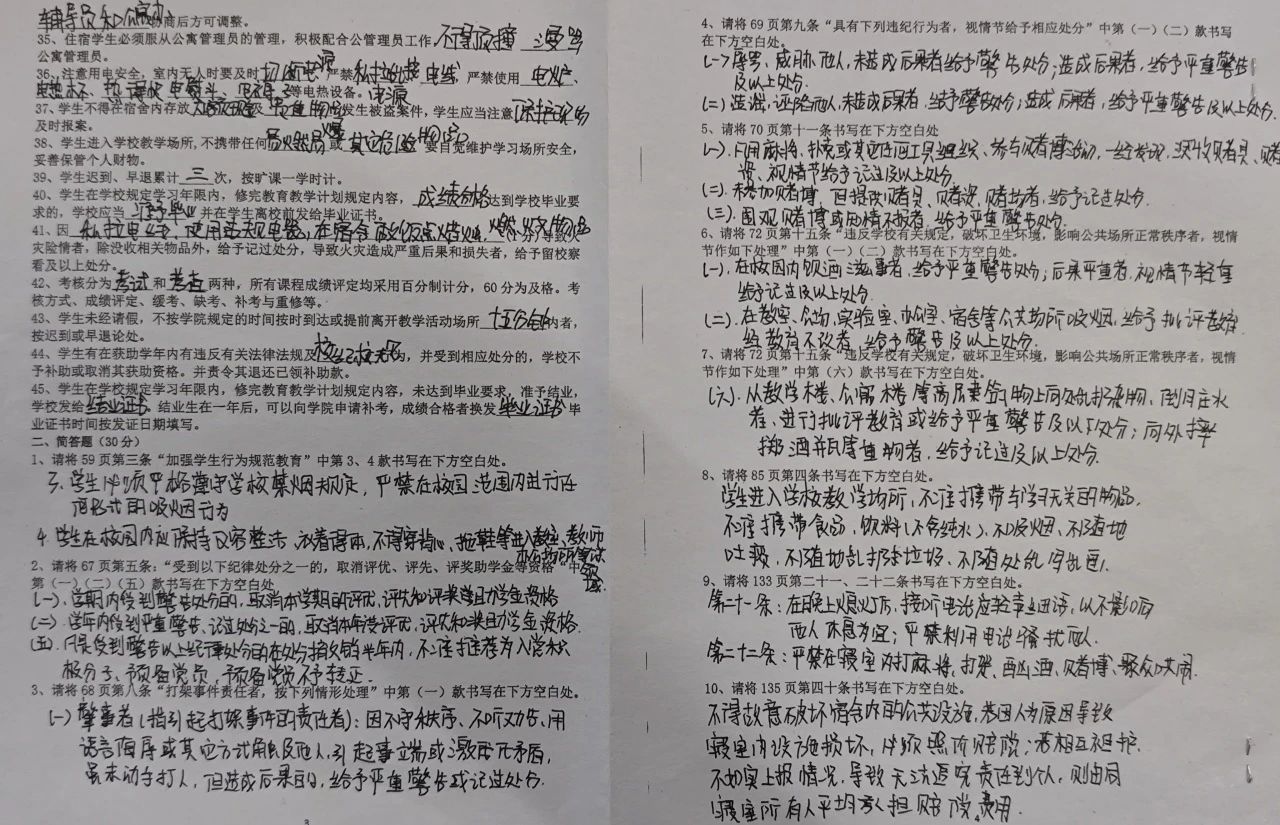 辅导员和公寓办协商后方可调整。
35、住宿学生必须服从公寓管理员的管理，积极配合公管理员工作，不得顶撞 谩骂
公寓管理员。
36、注意用电安全，室内无人时要及时切断电源，严禁私拉乱接电线 严禁使用 电炉、
电热杯、热得快 电熨斗、等电热设备。电源
37、学生不得在宿舍内存放大额现金及贵重物品发生被盗案件，学生应当注意保护现场
及时报案。
38、学生进入学校教学场所，不携带任何易燃易爆或其它危险物品，要自觉维护学习场所安全，
妥善保管个人财物。
39、学生迟到、早退累计 三 次，按旷课一学时计。
40、学生在学校规定学习年限内，修完教育教学计划规定内容， 成绩合格达到学校毕业要
求的，学校应当 准予毕业 并在学生离校前发给毕业证书。
41、因 私拉电线、使用违规电器、在宿舍 点蜡烛，燃烧物品 导致火
灾险情者，除没收相关物品外，给予记过处分，导致火灾造成严重后果和损失者，给予留校察
看及以上处分。
42、考核分为 考试 和 考查 两种，所有课程成绩评定均采用百分制计分，60 分为及格。考
核方式、成绩评定、缓考、缺考、补考与重修等。
43、学生未经请假，不按学院规定的时间按时到达或提前离开教学活动场所 十五分钟内者，
按迟到或早退论处。
44、学生有在获助学年内有违反有关法律法规及校纪校规为，并受到相应处分的，学校不
予补助或取消其获助资格。并责令其退还已领补助款。
45、学生在学校规定学习年限内，修完教育教学计划规定内容，未达到毕业要求，准予结业，
学校发给 结业证书。结业生在一年后，可以向学院申请补考，成绩合格者换发 毕业证书 毕
业证书时间按发证日期填写。
二、简答题（30 分）
1、请将 59 页第三条“加强学生行为规范教育”中第 3、4 款书写在下方空白处。
3. 学生必须严格遵守学校禁烟规定，严禁在校园范围内进行任
何形式的吸烟行为
4. 学生在校园内应保持仪容整洁，衣着得体，不得穿背心，拖鞋等进入教室、教师
办公场所等
2、请将 67 页第五条：“受到以下纪律处分之一的，取消评优、评先、评奖助学金等资格”中
第（一）（二）（五）款书写在下方空白处
(一). 学期内受到警告处分的，取消本学期的评优，评先和评奖学助学金资格
(二). 学年内受到严重警告、记过处分之一的，取消本年度评优，评先和奖助学金资格.
(五). 凡是受到警告以上纪律处分的在处分撤销半年内，不准推荐为入党积
极分子、预备党员，预备党员不予转正.
3、请将 68 页第八条“打架事件责任者，按下列情形处理”中第（一）款书写在下方空白处。
(一) 肇事者(指引起打架事件的责任者)：因不守秩序、不听劝告、用
语言侮辱或其它方式触及他人，引起事端或激化矛盾，
虽未动手打人，但造成后果的，给予严重警告或记过处分.
3
4、请将 69 页第九条“具有下列违纪行为者，视情节给予相应处分”中第（一）（二）款书写
在下方空白处。
(一) 辱骂、威胁他人，未造成后果者给予警告处分；造成后果者，给予严重警告
及以上处分.
(二) 造谣、诬陷他人，未造成后果者，给予警告处分；造成后果者，给予严重警告及以上处分.
5、请将 70 页第十一条书写在下方空白处
(一). 凡用麻将、扑克或其它任何工具组织、参与赌博活动，一经发现，没收赌具、赌
资、视情节给予记过及以上处分.
(二). 未参加赌博，但提供赌具、赌资、赌场者，给予记过处分.
(三). 围观赌博或知情不报者，给予严重警告处分.
6、请将 72 页第十五条“违反学校有关规定，破坏卫生环境，影响公共场所正常秩序者，视情
节作如下处理”中第（一）（二）款书写在下方空白处。
(一). 在校园内饮酒滋事者，给予严重警告处分；后果严重者，视情节轻重
给予记过及以上处分.
(二). 在教室、会场、实验室、办公室、宿舍等公共场所吸烟，给予批评教育
经教育不改者，给予警告及以上处分.
7、请将 72 页第十五条“违反学校有关规定，破坏卫生环境，影响公共场所正常秩序者，视情
节作如下处理”中第（六）款书写在下方空白处。
(六). 从教学楼、公寓楼等高层建筑物上向外乱扔杂物、倒脏水
者、进行批评教育或给予严重警告及以下处分；向外摔
掷酒瓶等重物者，给予记过及以上处分.
8、请将 85 页第四条书写在下方空白处。
学生进入学校教学场所，不准携带与学习无关的物品，
不准携带食品，饮料(不含纯水)、不吸烟、不随地
吐痰，不随地乱扔垃圾、不随处乱写乱画.
9、请将 133 页第二十一、二十二条书写在下方空白处。
第二十一条：在晚上熄灯后，接听电话应轻声通话，以不影响
他人休息为宜；严禁利用电话骚扰他人.
第二十二条：严禁在寝室内打麻将，打架、酗酒、赌博、聚众哄闹.
10、请将 135 页第四十条书写在下方空白处。
不得故意破坏宿舍内的公共设施，若因人为原因导致
寝室内设施损坏，必须照价赔偿；若相互袒护.
不如实上报情况，导致无法追究责任到个人，则由同
寝室所有人平均承担赔偿费用.